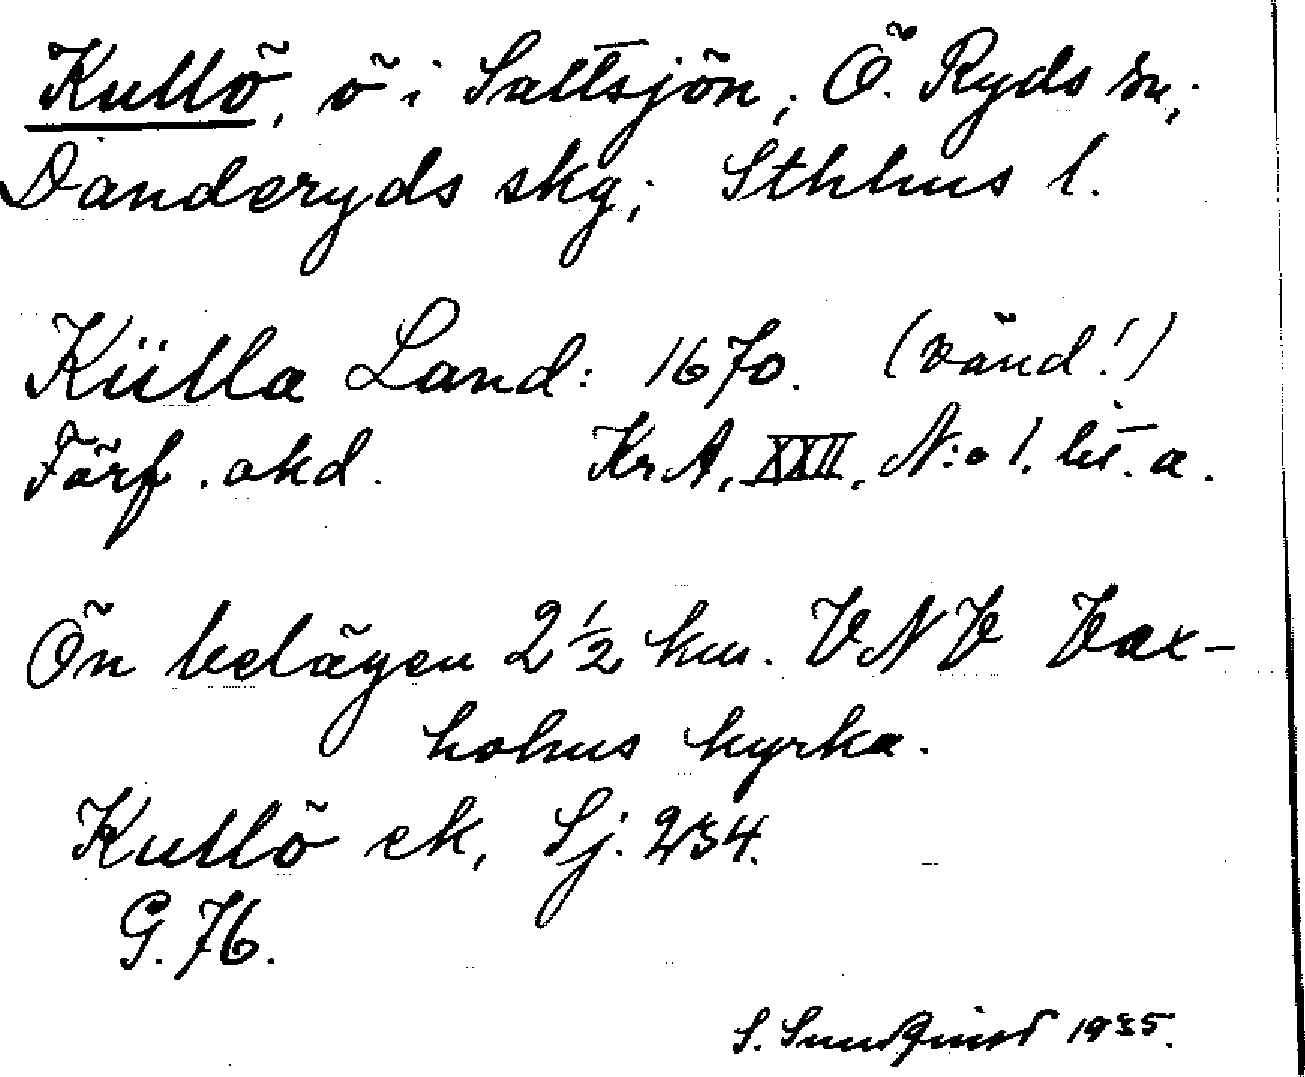 Kullö, ö i Saltsjön, Ö. Ryds sn,
Danderyds skg; Sthlms l.
Külla Land: 1670. (vänd!)
Förf. okd. KrA, XXII, N:o 1. lit. a.
Ön belägen 2 1/2 km. VNV Vax-
holms kyrka.
Kullö ek, Sj. 234.
G. 76.
S. Sundquist 1935.